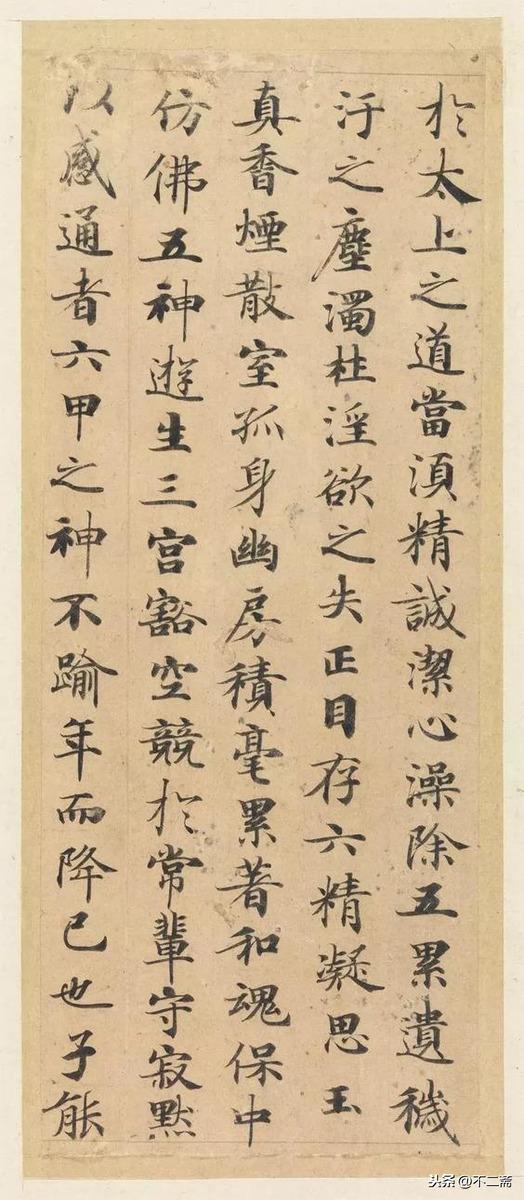 於太上之道當湏精誠潔心澡除五累遺穢
汙之塵濁杜淫欲之失正目存六精凝思玉
真香煙散室孤身幽房積毫累著和魂保中
仿佛五神遊生三宮豁空競於常輩守寂默
以感通者六甲之神不踰年而降已也子能
头条@不二斋